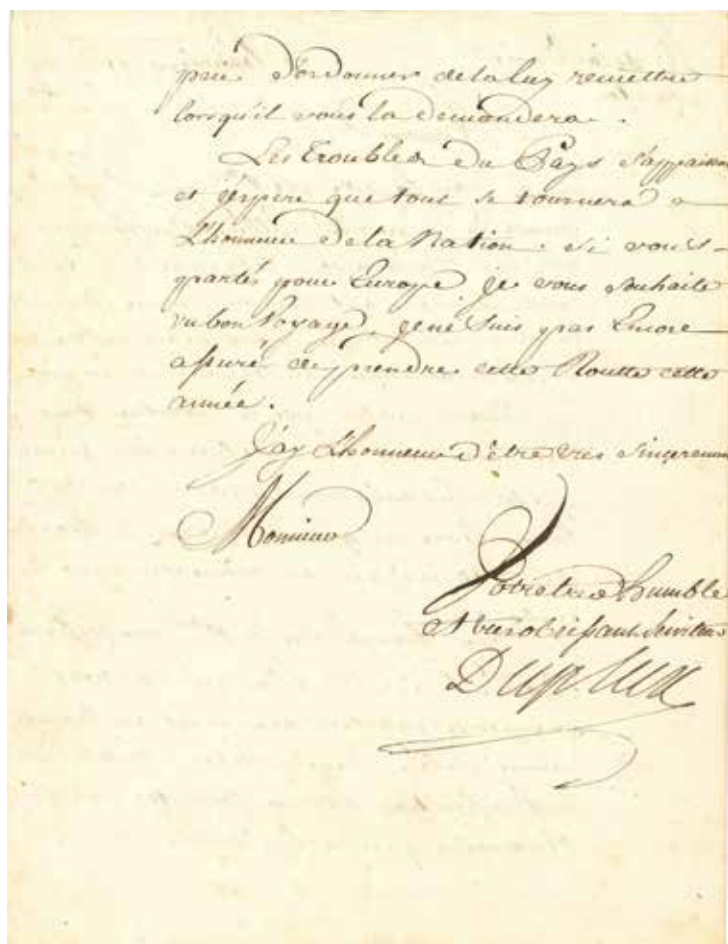 prie d'ordonner de la luy remettre
lorsqu'il vous la demandera.
Les Troubles du Pays s'appaisen
et j'espere que tout se tournera a
L'honneur de la Nation. si vous
partés pour Europe je vous souhaite
un bon Voyage, je ne suis pas Encore
assuré de prendre cette Routte cette
année.
J'ay L'honneur d'etre tres sincerem
Monsieur
Votre tres humble
et tres obeissant serviteur
Dupleix